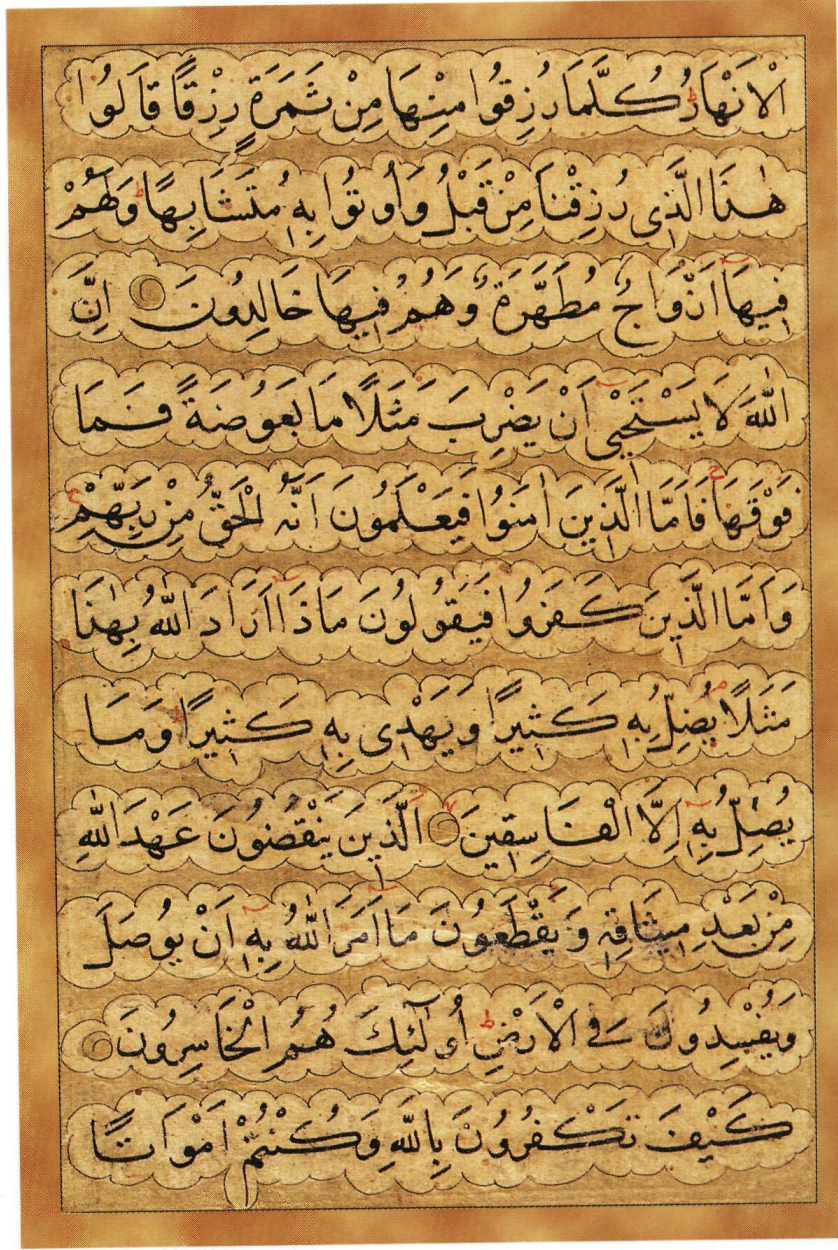 الْاَنْهَارُ كُلَّمَا رُزِقُوا مِنْهَا مِنْ ثَمَرَةٍ رِزْقًا قَالُوا
هٰذَا الَّذِى رُزِقْنَا مِنْ قَبْلُ وَاُوتُوا بِهِ مُتَشَابِهًا وَلَهُمْ
فِيهَا اَزْوَاجٌ مُطَهَّرَةٌ وَهُمْ فِيهَا خَالِدُونَ اِنَّ
اللّٰهَ لَا يَسْتَحْيِى اَنْ يَضْرِبَ مَثَلًا مَا بَعُوضَةً فَمَا
فَوْقَهَا فَاَمَّا الَّذِينَ اٰمَنُوا فَيَعْلَمُونَ اَنَّهُ الْحَقُّ مِنْ رَبِّهِمْ
وَاَمَّا الَّذِينَ كَفَرُوا فَيَقُولُونَ مَاذَا اَرَادَ اللّٰهُ بِهٰذَا
مَثَلًا يُضِلُّ بِهِ كَثِيرًا وَيَهْدِى بِهِ كَثِيرًا وَمَا
يُضِلُّ بِهِ اِلَّا الْفَاسِقِينَ اَلَّذِينَ يَنْقُضُونَ عَهْدَ اللّٰهِ
مِنْ بَعْدِ مِيثَاقِهِ وَيَقْطَعُونَ مَا اَمَرَ اللّٰهُ بِهِ اَنْ يُوصَلَ
وَيُفْسِدُونَ فِى الْاَرْضِ اُولٰئِكَ هُمُ الْخَاسِرُونَ
كَيْفَ تَكْفُرُونَ بِاللّٰهِ وَكُنْتُمْ اَمْوَاتًا